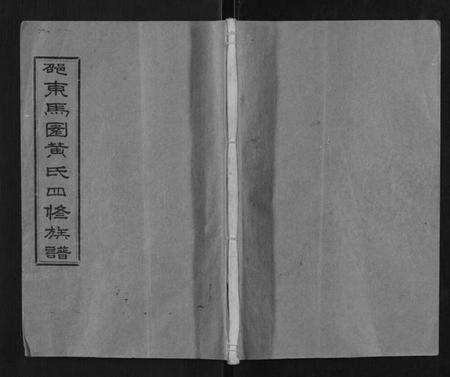 邑東馬園黃氏四修族譜